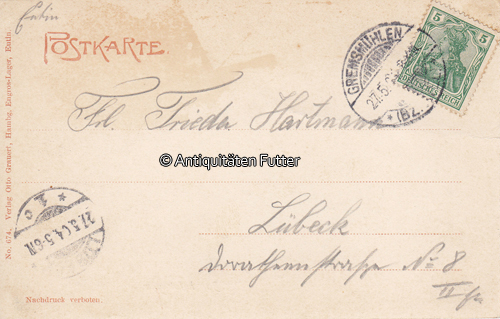 Eutin
POSTKARTE.
5 5
GREMSMÜHLEN
27.5.
*(BZ.
Frl. Frieda Hartmann
© Antiquitäten Futter
27.5.04.5-6N
Lübeck
Dorotheenstraße No 8
II
No. 674. Verlag Otto Grauert, Hambg. Engros-Lager, Eutin
Nachdruck verboten.